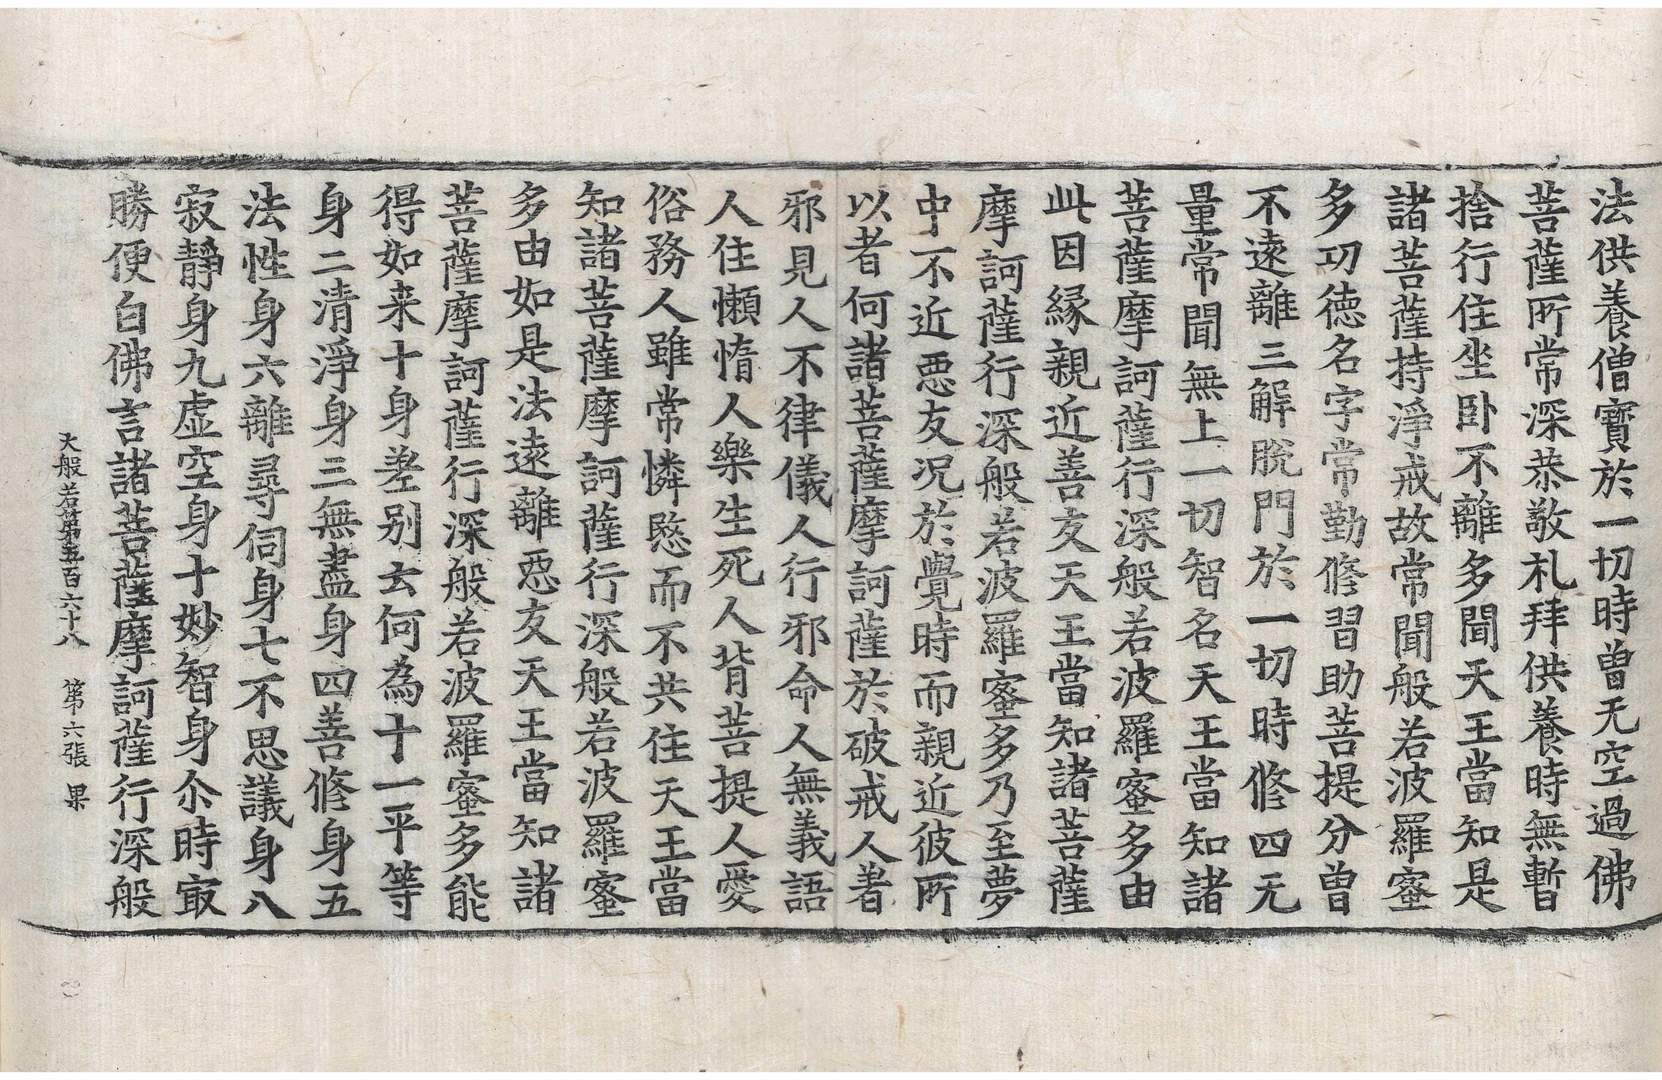 法供養僧寶於一切時曽无空過佛
菩薩所常深恭敬礼拜供養時無暫
捨行住坐卧不離多聞天王當知是
諸菩薩持淨戒故常聞般若波羅蜜
多功德名字常勤修習助菩提分曽
不遠離三解脫門於一切時修四无
量常聞無上一切智名天王當知諸
菩薩摩訶薩行深般若波羅蜜多由
此因緣親近善友天王當知諸菩薩
摩訶薩行深般若波羅蜜多乃至夢
中不近惡友況於覺時而親近彼所
以者何諸菩薩摩訶薩於破戒人著
邪見人不律儀人行邪命人無義語
人住懶惰人樂生死人背菩提人愛
俗務人雖常憐愍而不共住天王當
知諸菩薩摩訶薩行深般若波羅蜜
多由如是法遠離惡友天王當知諸
菩薩摩訶薩行深般若波羅蜜多能
得如来十身差别云何為十一平等
身二清淨身三無盡身四善修身五
法性身六離尋伺身七不思議身八
寂靜身九虛空身十妙智身尒時㝡
勝便白佛言諸菩薩摩訶薩行深般
大般若第五百六十八 第六張 果